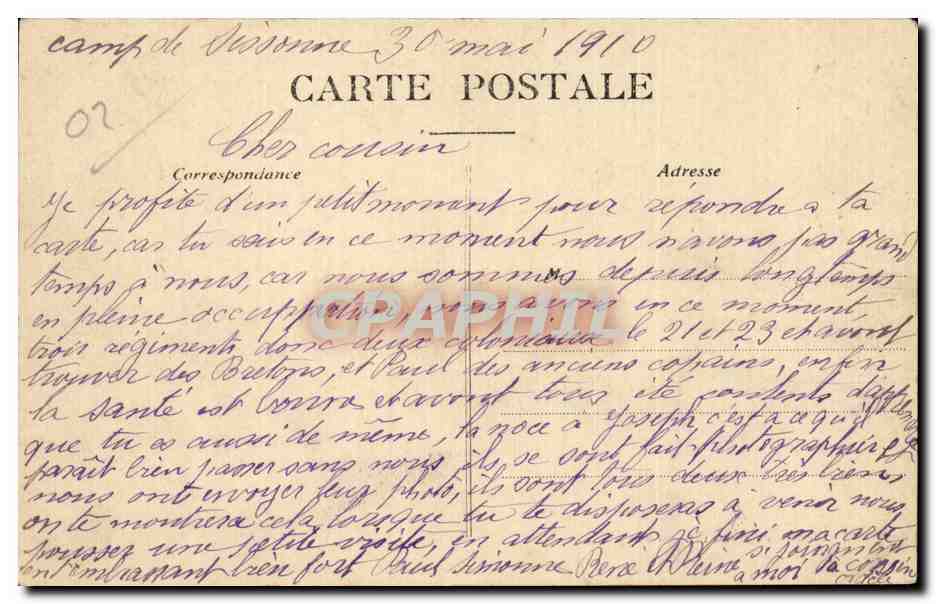 camp de Sissonne 30 mai 1910
02
CARTE POSTALE
Cher cousin
Correspondance
Adresse
Je profite d'un petit moment pour répondre a ta
carte, car tu sais en ce moment nous n'avons pas grand
temps à nous, car nous sommes depuis longtemps
M
en pleine occuppation, nous avons en ce moment,
CPAPHIL
trois régiments donc deux coloniaux le 21 et 23 et avont
trouver des Bretons, et Paul des anciens copains, enfin
la santé est bonne et avont tous été contents d'app
que tu es aussi de même, la noce a Joseph c'est a ce qu'il
paraît bien passer sans nous, ils se sont fait photographier
nous ont envoyer leur photo, ils sont tous deux très bien
on te montrera cela lorsque tu te disposeras à venir nous
pousser une petite visite, en attendant je fini ma carte
en t'embrassant bien fort Paul Simonne René
se joignent
a moi ta cousine